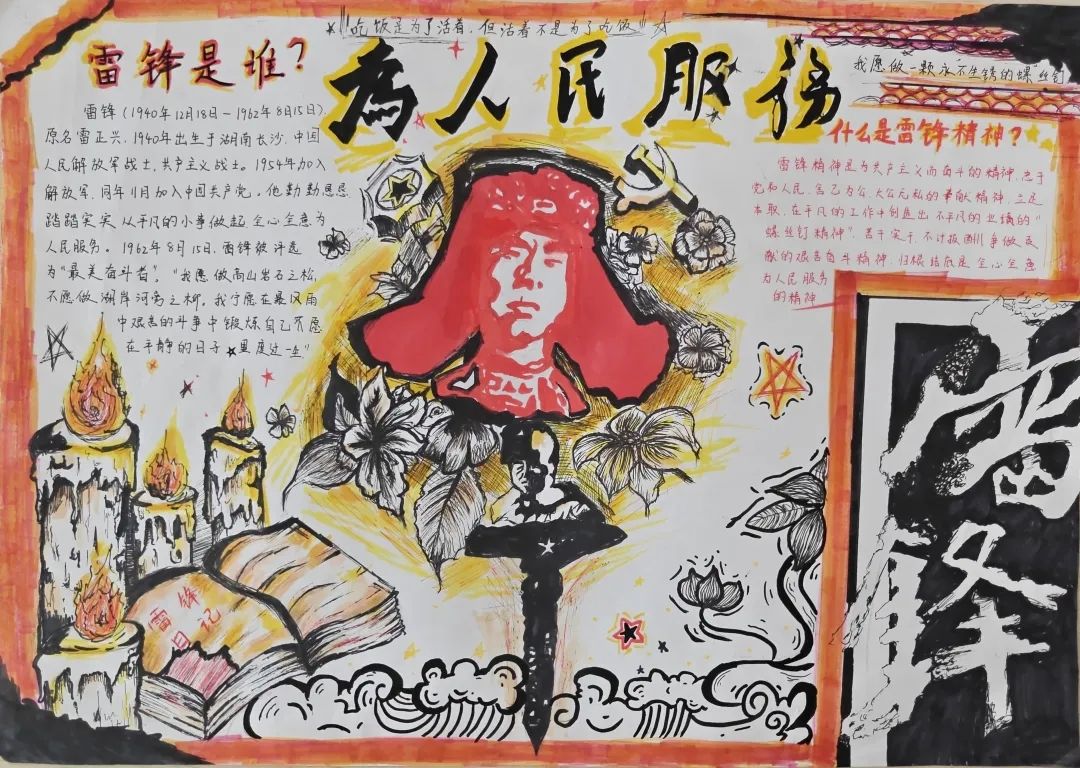 吃饭是为了活着，但活着不是为了吃饭
為人民服務
我愿做一颗永不生锈的螺丝钉
雷锋是谁？
雷锋（1940年12月18日－1962年8月15日），
原名雷正兴，1940年出生于湖南长沙，中国
人民解放军战士，共产主义战士。1954年加入
解放军，同年11月加入中国共产党。他勤勤恳恳
踏踏实实 从平凡的小事做起 全心全意为
人民服务。1962年8月15日，雷锋被评选
为“最美奋斗者”。“我愿做高山岩石之松，
不愿做湖岸河旁之柳。我宁愿在暴风雨
中艰苦的斗争中锻炼自己不愿
在平静的日子里度过一生”
什么是雷锋精神？
雷锋精神是为共产主义而奋斗的精神，忠于
党和人民、舍己为公、大公无私的奉献精神，立足
本职、在平凡的工作中创造出不平凡的业绩的“
螺丝钉精神”，苦干实干、不计报酬、争做贡
献的艰苦奋斗精神，归根结底是全心全意
为人民服务
的精神
雷锋
日记
雷
锋